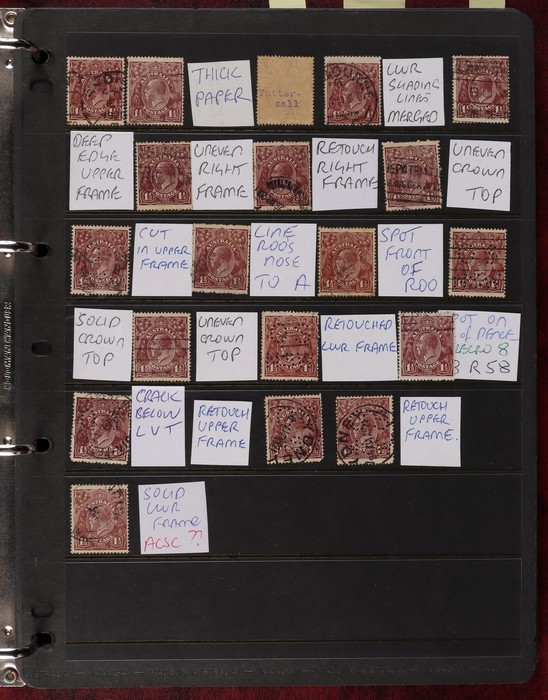 THICK
PAPER
Tatter-
sall
LWR
SHADING
LINES
MERGED
DEEP
EDGE
UPPER
FRAME
UNEVEN
RIGHT
FRAME
RETOUCH
RIGHT
FRAME
UNEVEN
CROWN
TOP
CUT
IN UPPER
FRAME
LINE
ROO'S
NOSE
TO A
SPOT
FRONT
OF
ROO
SOLID
CROWN
TOP
UNEVEN
CROWN
TOP
RETOUCHED
LWR FRAME
POT ON
of PENCE
R 58
CRACK
BELOW
LVT
RETOUCH
UPPER
FRAME
RETOUCH
UPPER
FRAME.
SOLID
LWR
FRAME
ACSC ??